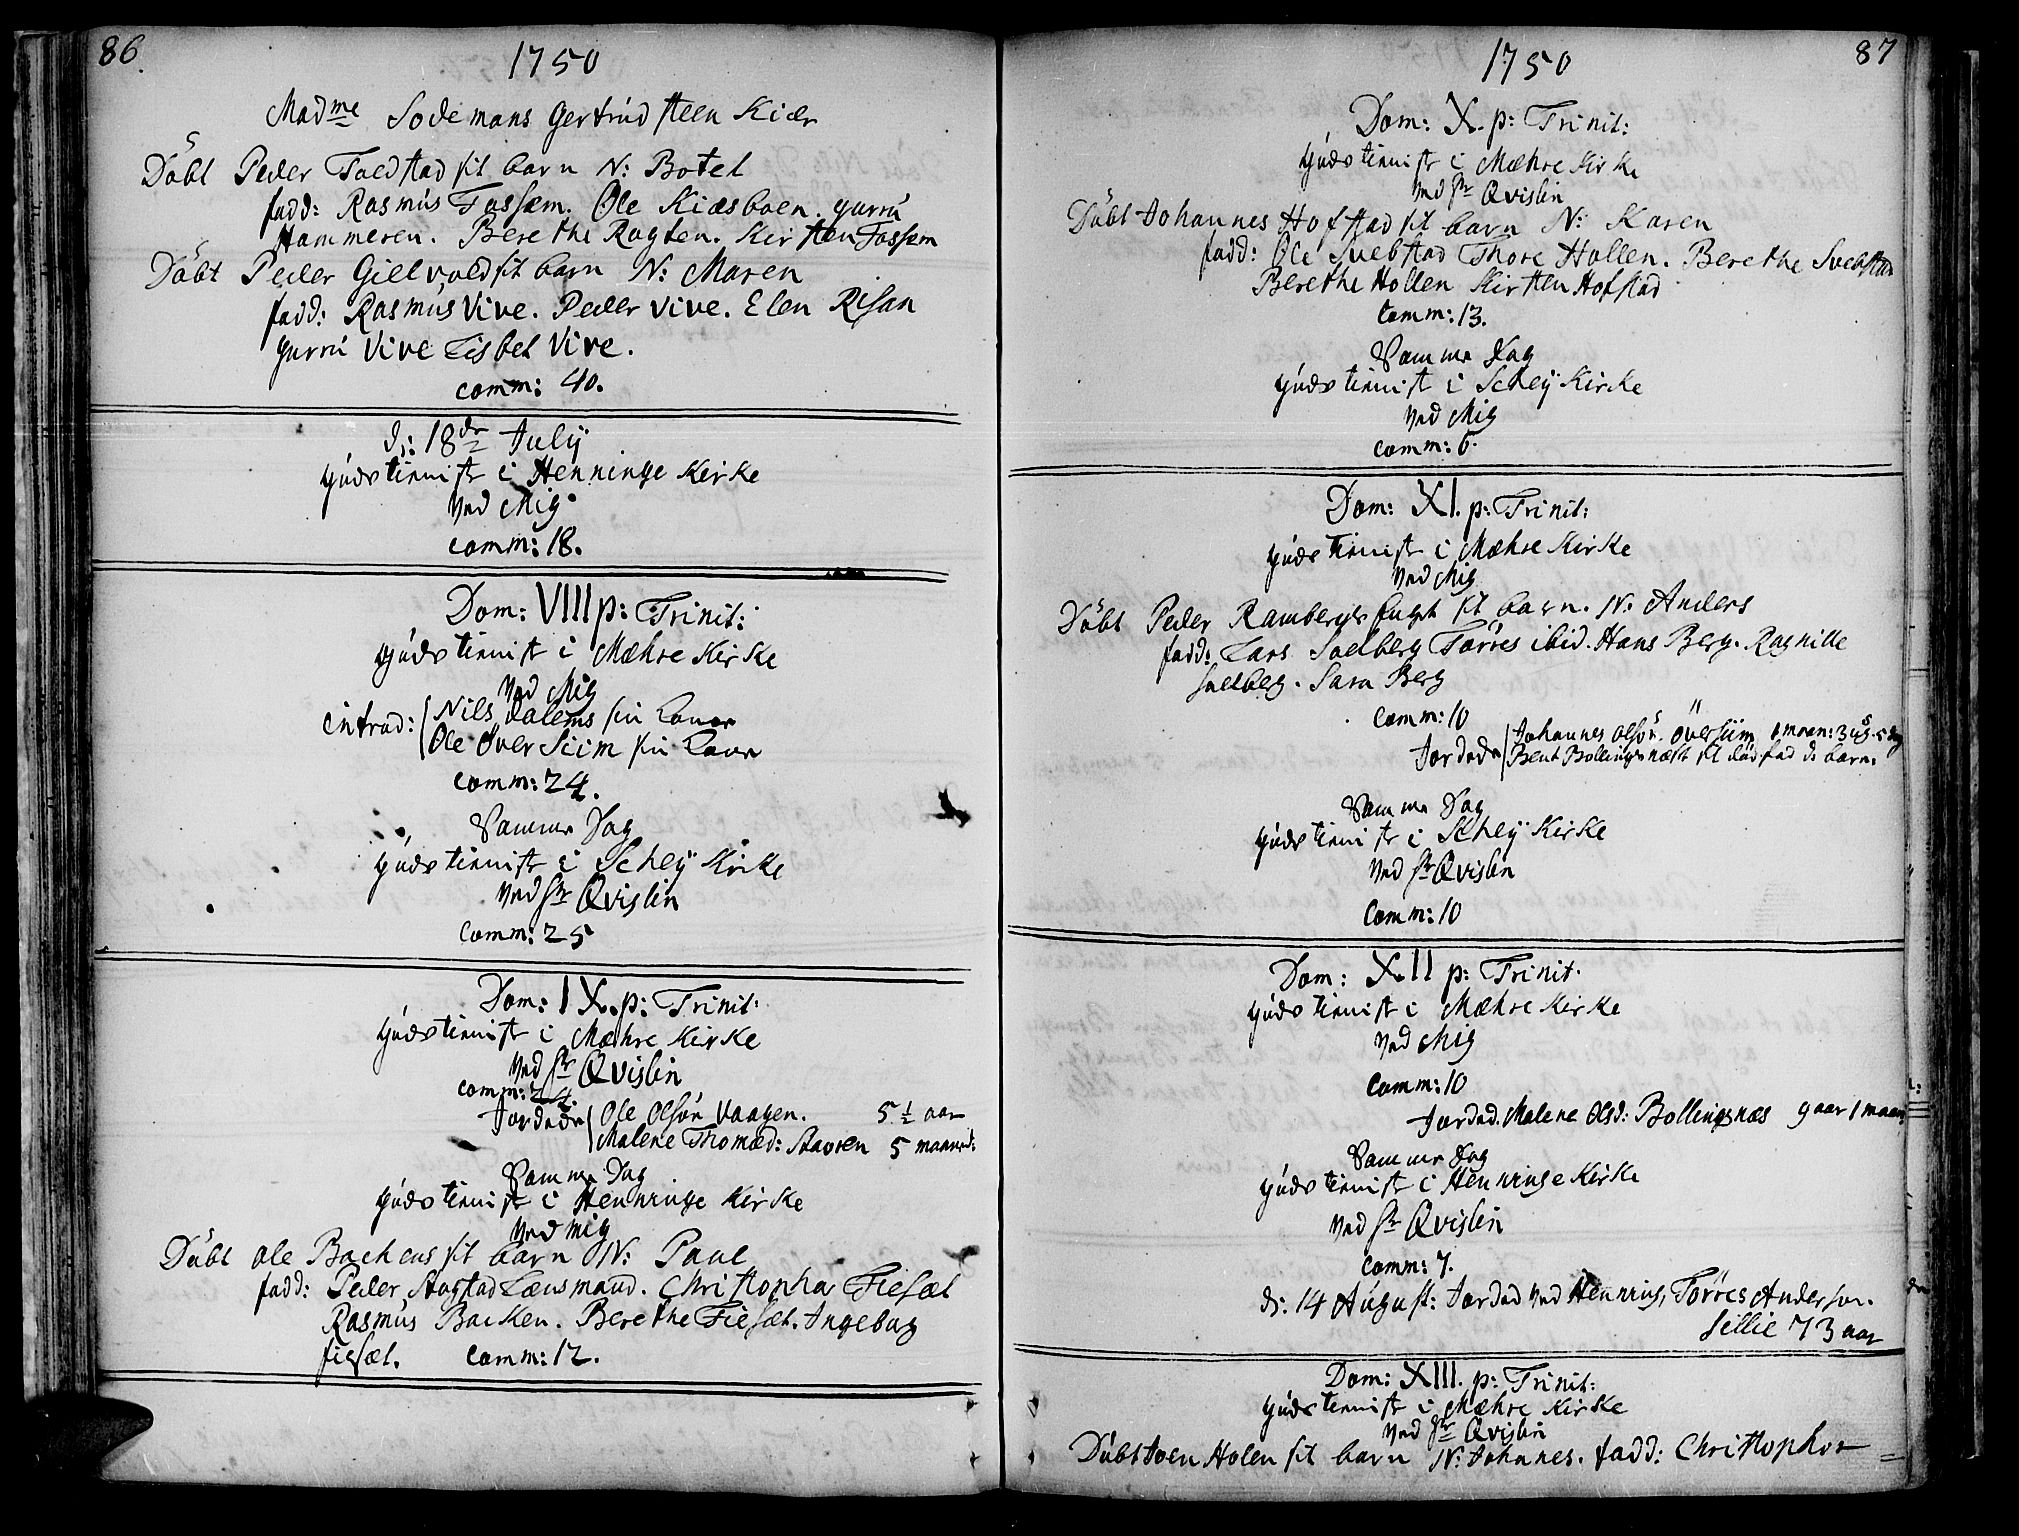 86.
1750
Madme Sodemans Gertrud steen Kiær
Döbt Peder Foldstad sit barn N: Botel
fadd: Rasmus Fossem. Ole Kiæsboen. gurru
Hammeren. Berethe Rogten. Kirsten Fossem
Döbt Peder Gielvold sit barn N: Maren
fadd: Rasmus Vive. Peder Vive. Elen Risan
gurru Vive Lisbet Vive.
comm: 40.
d: 18de July
gudstienist i Henninge Kirke
ved Mig
comm: 18.
Dom: VIII p: Trinit:
gudstienist i Mæhre Kirke
ved Mig
introd: Nils Dalems sin kone
Ole Over Siim sin kone
comm: 24.
Samme Dag
gudstienist i Schey Kirke
ved Hr Qvislin
comm: 25
Dom: IX. p: Trinit:
gudstienist i Mæhre Kirke
ved Hr Qvislin
comm: 24.
Jordede Ole Olsön Vaagen. 5 1/2 aar
Malene Thomæd: Stavren 5 maaned:
Samme Dag
gudstienist i Henninge Kirke
ved mig
Döbt ole Bachens sit barn N: Paul
fadd: Peder Stogstad Lensmand. Christopher Fiesæt
Rasmus Backen. Berethe Fiesæt. Ingebog
fiesæt. comm: 12.
87
1750
Dom: X. p: Trinit:
gudstienist i Mæhre Kirke
ved Hr Qvislin
Döbt Johannes Hofstad sit barn N: Karen
fadd: Ole Svebstad Thore Hollen. Berethe Svebstad
Berethe Hollen Kirsten Hofstad
comm: 13.
Samme Dag
gudstienist i Schey Kirke
ved Mig
comm: 6.
Dom: XI. p: Trinit:
gudstienist i Mæhre Kirke
ved Mig
Döbt Peder Rambergs sit barn. N: Anders
fadd: Lars Soelberg Torres ibid. Hans Berg. Ragnille
soelberg. Sara Berg
comm: 10
Jordede Johannes olsön. Översiim 1 maan: 3 ug. 5 dag
Bent Bollingsnæs sit död fød: barn.
Samme Dag
gudstienist i Schey Kirke
ved Hr Qvislin
comm: 10
Dom: XII p: Trinit.
gudstienist i Mæhre Kirke
ved Mig
comm: 10
Jorded. Malene Olsd: Bollingsnæs 9 aar 1 maan:
Samme Dag
gudstienist i Henninge Kirke
ved Hr Qvislin
comm: 7.
d: 14 August: Jorded ved Henning, Törres Anderson.
Sellie 73 aar
Dom: XIII. p: Trinit:
gudstienist i Mæhre Kirke
ved Hr Qvislin
Döbt Joen Holen sit barn N: Johannes. fadd: Christopher =